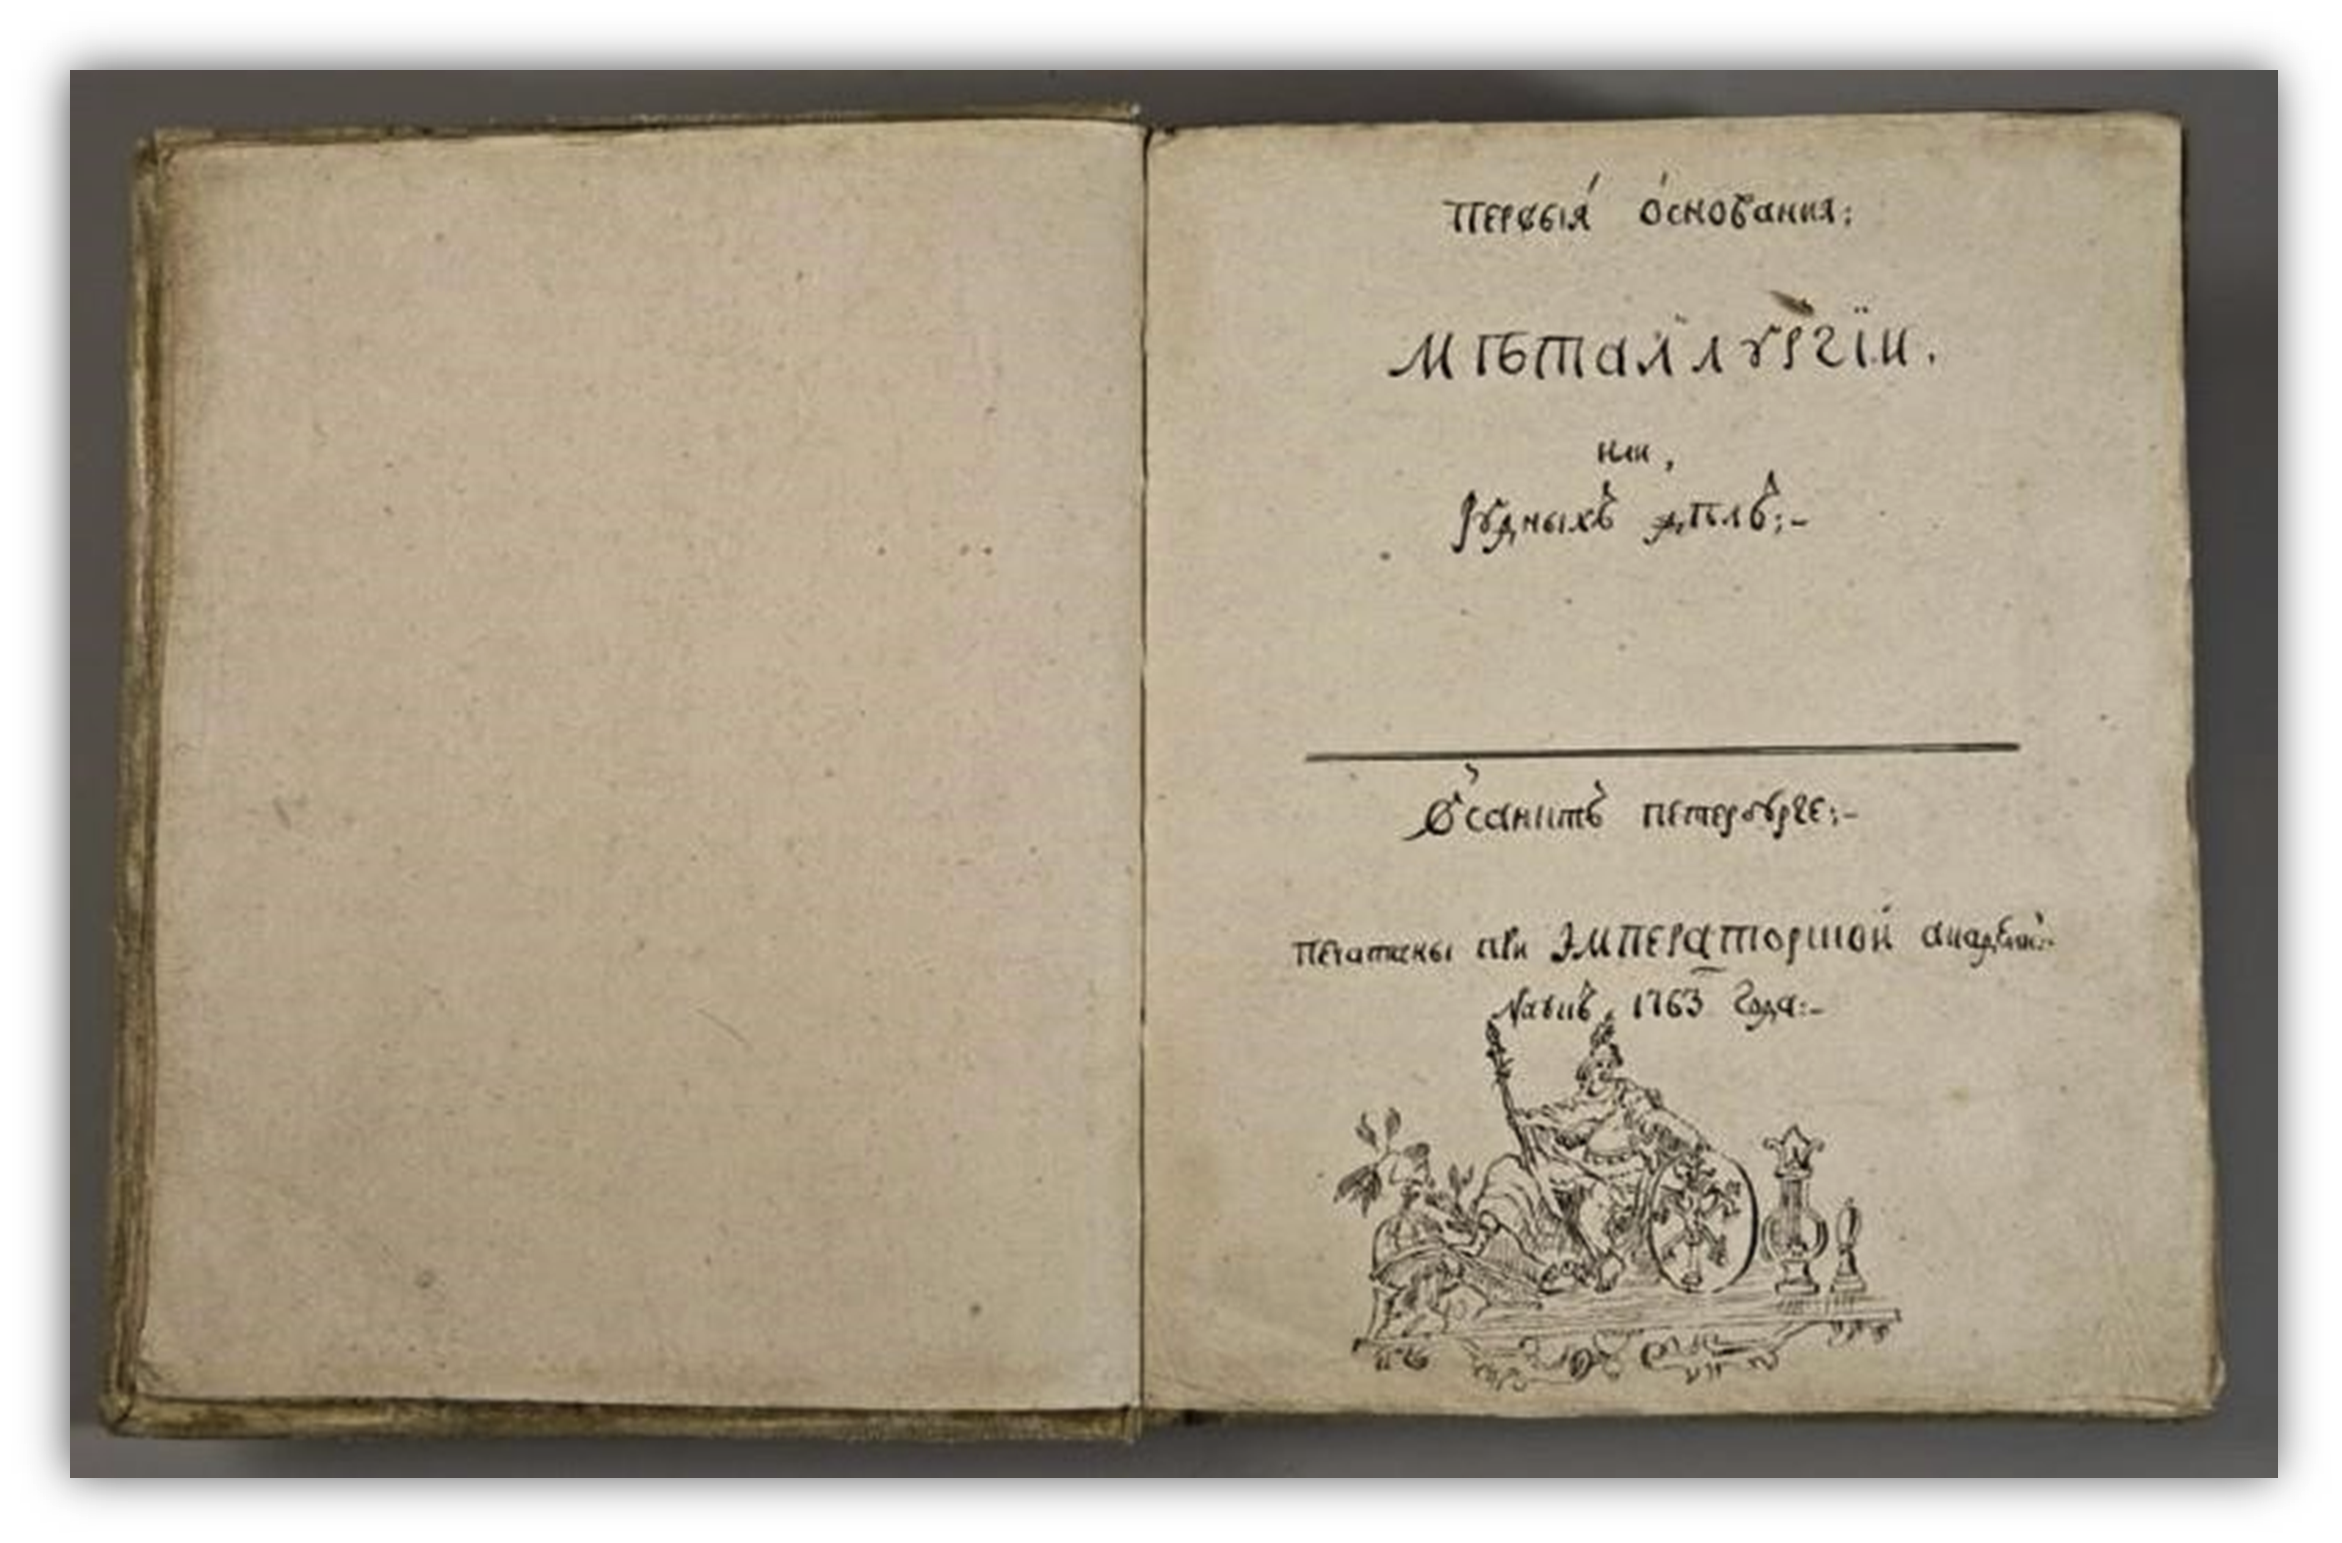 Первыя́ о́снования:
Мѣталлургїи.
или,
Рудныхъ дѣлъ:-
В санитъ петербурге:-
Печатаны при Императорской академии:-
Наукъ, 1763 года:-